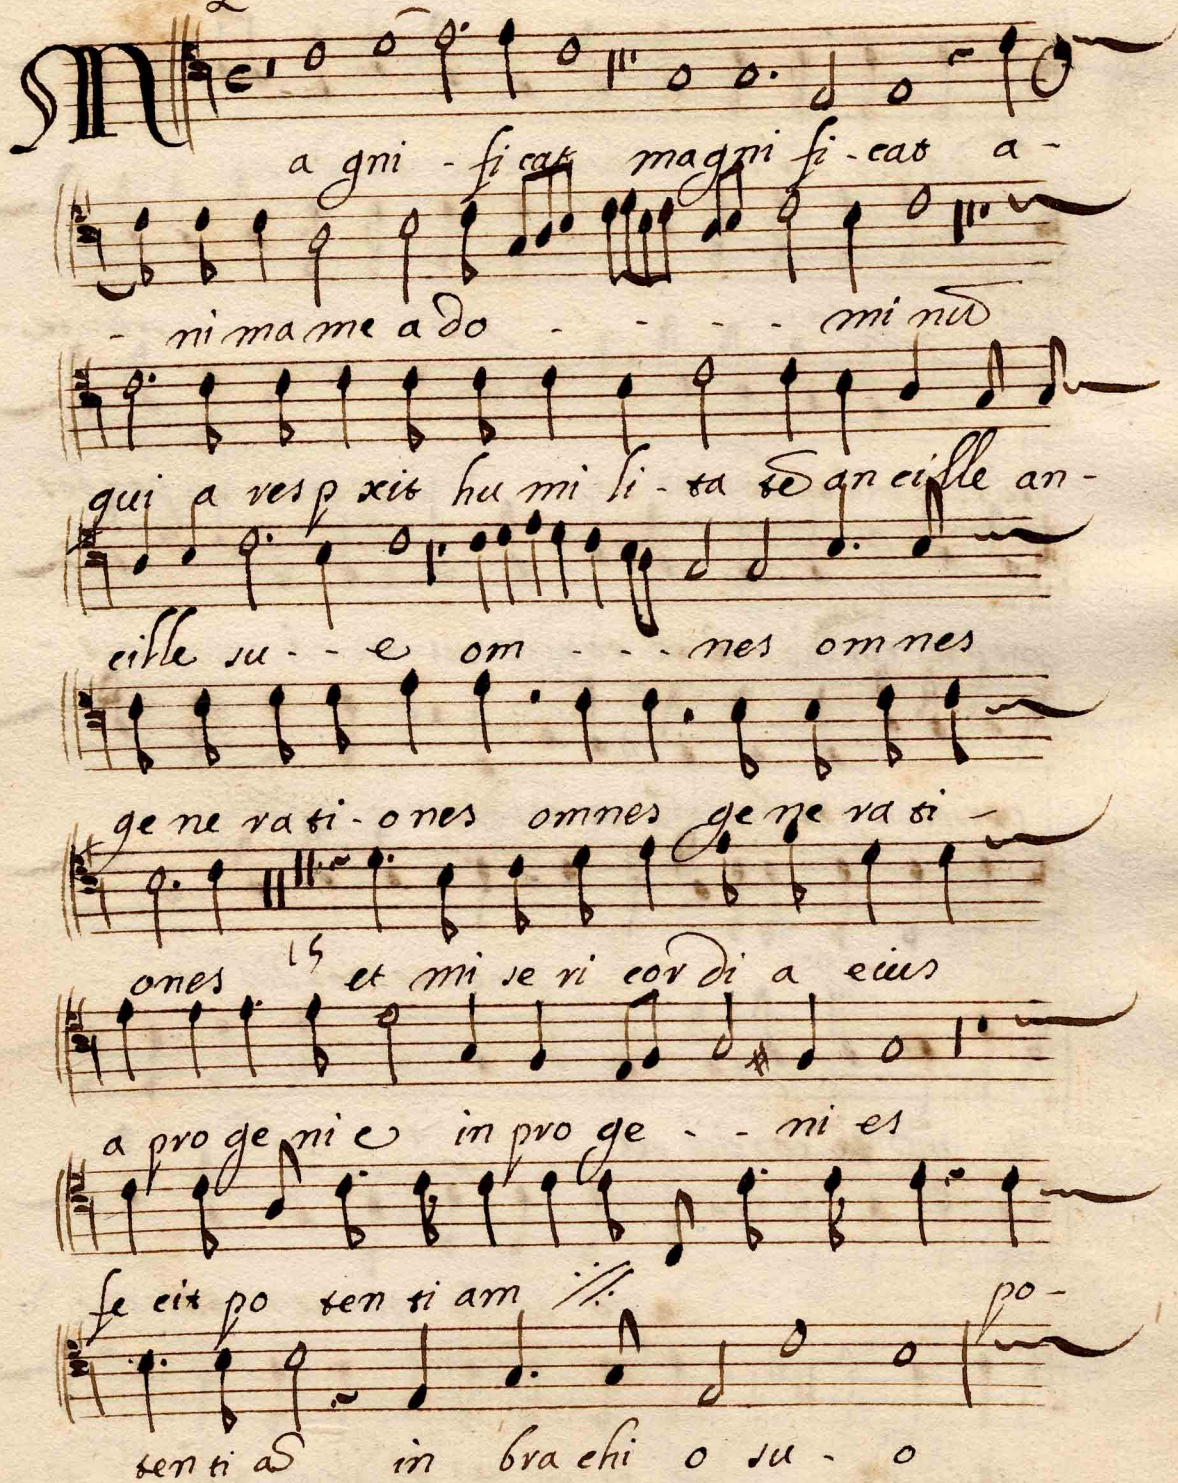 M a gni - fi cat magni fi - cat a -
- ni ma me a do - - - - mi nū
qui a resp xit hu mi li - ta tē an cille an -
cille su - - e om - - - nes omnes
ge ne ra ti - o nes omnes ge ne ra ti -
ones 15 et mi se ri cor di a eius
a pro ge ni e in pro ge - - ni es
fe cit po ten ti am ·//· po -
ten ti ā in bra chi o su - o